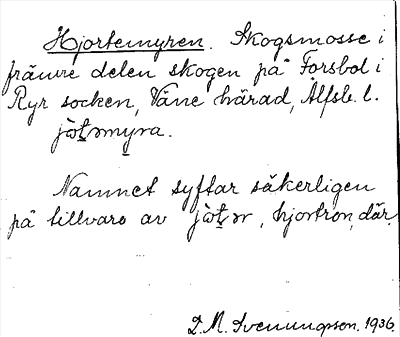 Hjortemyren. Skogsmosse i
främre delen skogen på Forsbol i
Ryr socken, Väne härad, Älfsb. l.
jò̱tmyra.
Namnet syftar säkerligen
på tillvaro av jò̱tər, hjortron, där.
D.M. Svenungsson. 1936.